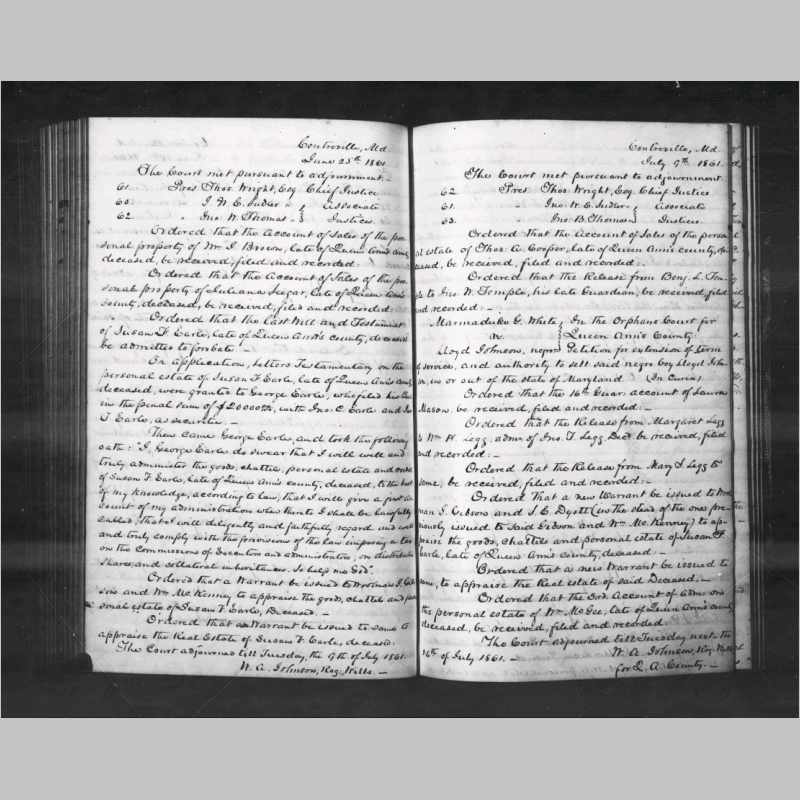 Centreville, Md.
June 25th 1861
The Court met pursuant to adjournment. -
61. Pres Thos. Wright, Esq Chief Justice
60 " J. W. E. Sudler } Associate
62. " Jno. W. Thomas - } Justices.
Ordered that the Account of Sales of the per
sonal property of Wm. J. Brown, late of Queen Ann's county
deceased, be received, filed and recorded.
Ordered that the Account of Sales of the per
sonal property of Juliana Segar, late of Queen Ann's
County, deceased, be received, filed and recorded.
Ordered that the Last Will and Testament
of Susan F. Earle, late of Queen Ann's county, deceased
be admitted to Probate. -
On application, Letters Testamentary on the
personal estate of Susan F. Earle, late of Queen Ann's county
deceased, were granted to George Earle, who filed his
in the penal sum of $20000.00, with Jno. C. Earle and
T. Earle, as securities. -
Then came George Earle, and took the following
oath: "I, George Earle do swear that I will well and
truly administer the goods, chattels, personal estate and
of Susan F. Earle, late of Queen Ann's county, deceased, to the best
of my knowledge, according to law, that I will give a just ac
count of my administration when thereto I shall be lawfully
called; that I will diligently and faithfully regard and
and truly comply with the provisions of the law imposing a tax
on the commissions of Executors and administrators, on distributive
shares, and collateral inheritances. So help me God".
Ordered that a Warrant be issued to Woodman J. Gib
son and Wm. McKenney to appraise the goods, chattels and per
sonal estate of Susan F. Earle, Deceased. -
Ordered that a Warrant be issued to same to
appraise the Real Estate of Susan F. Earle, deceased.
The Court adjourned till Tuesday, the 9th. of July 1861.
W. A. Johnson, Reg. Wills. -
Centreville, Md.
July 9th. 1861.
The Court met pursuant to adjournment
62 Pres Thos. Wright, Esq. Chief Justice
61. " Jno. W. E. Sudler } Associate
63. " Jno. B. Thomas } Justices
Ordered that the Account of Sales of the person
al estate of Thos. A. Cooper, late of Queen Ann's county, de
ceased, be received, filed and recorded. -
Ordered that the Release from Benj. L. Tem
ple to Jno. W. Temple, his late Guardian, be received, filed
and recorded. -
Marmaduke G. White } In the Orphans Court for
vs. } Queen Ann's County.
Lloyd Johnson, negro } Petition for extension of term
of service, and authority to sell said negro boy Lloyd John
son, in or out of the state of Maryland (In Curia)
Ordered that the 16th Guar. account of Laura
Mason, be received, filed and recorded. -
Ordered that the Release from Margaret Legg
to Wm. W. Legg, admr of Jno. T. Legg Decd. be received, filed
and recorded. -
Ordered that the Release from Mary S. Legg to
same, be received, filed and recorded. -
Ordered that a new Warrant be issued to Wood
man J. Gibson and J. E. Dyott (in the stead of the ones pre
viously issued to said Gibson and Wm. McKenney) to ap
praise the goods, chattels and personal estate of Susan F.
Earle, late of Queen Ann's county, deceased. -
Ordered that a new Warrant be issued to
same, to appraise the Real estate of said Deceased. -
Ordered that the 3rd. Account of admr. on
the personal estate of Wm. McGee, late of Queen Ann's county
deceased, be received, filed and recorded.
The Court adjourned till Tuesday next the
16th of July 1861. -
W. A. Johnson, Reg. Wills
for Q. A. County. -